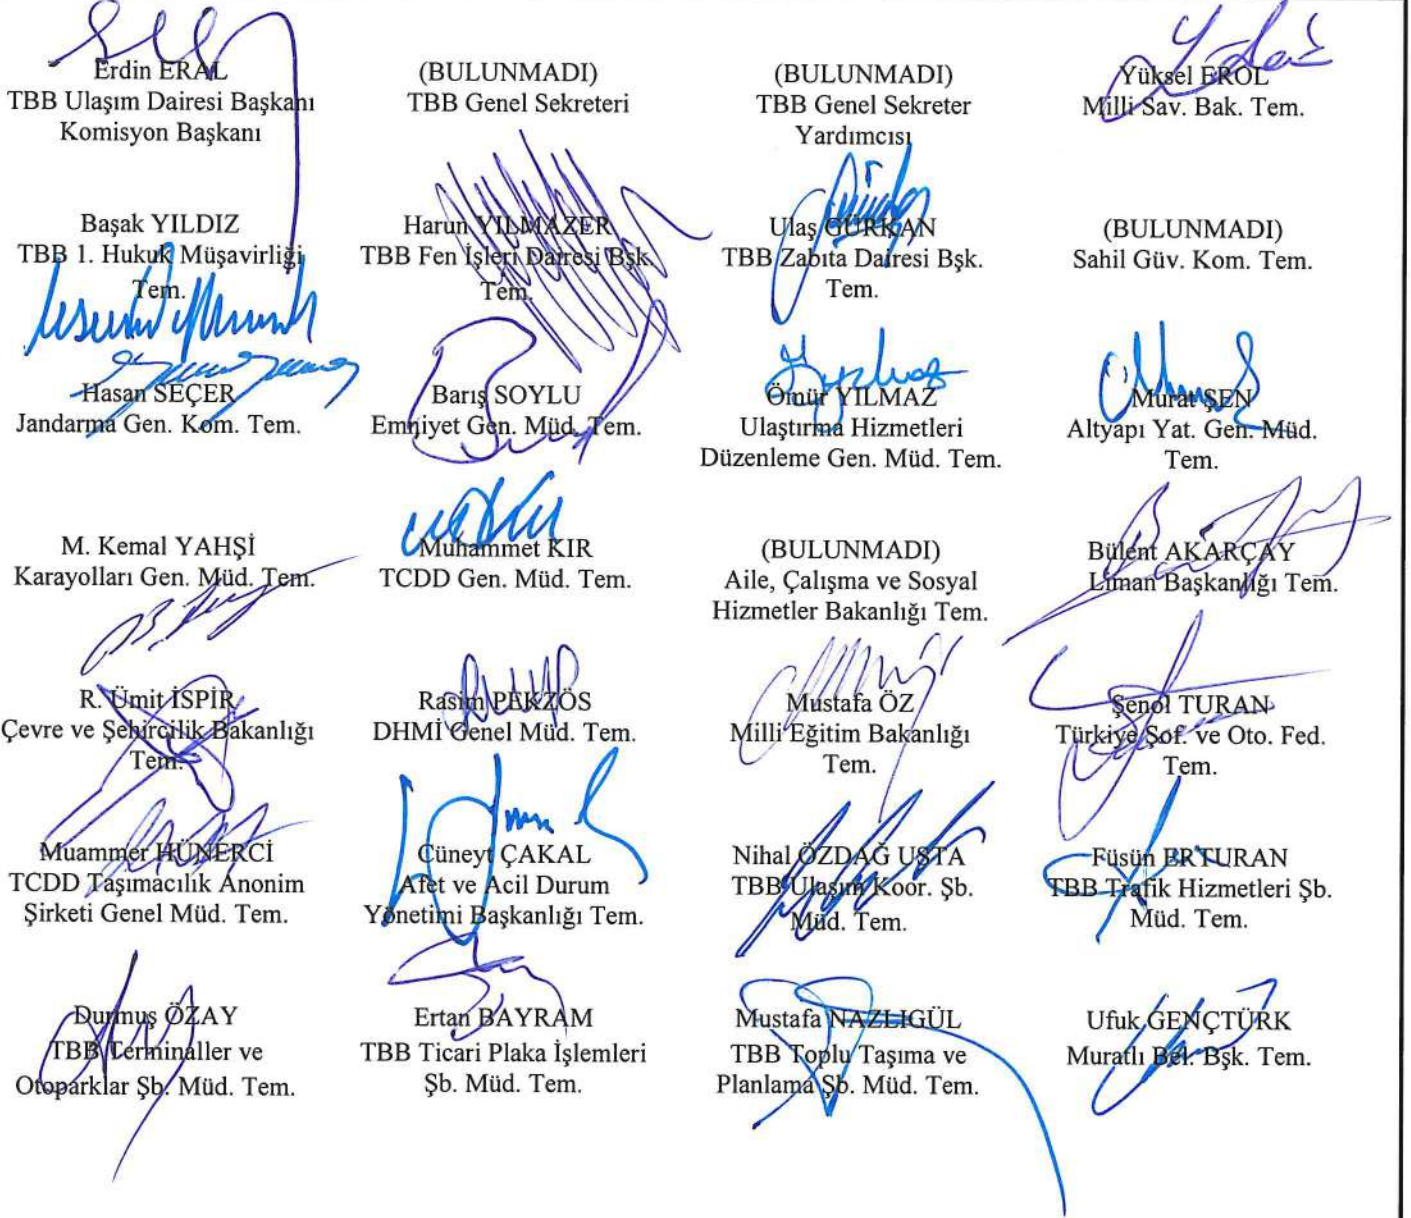 Erdin ERAL
TBB Ulaşım Dairesi Başkanı
Komisyon Başkanı
(BULUNMADI)
TBB Genel Sekreteri
(BULUNMADI)
TBB Genel Sekreter
Yardımcısı
Yüksel EROL
Milli Sav. Bak. Tem.
Başak YILDIZ
TBB 1. Hukuk Müşavirliği
Tem.
Harun YILMAZER
TBB Fen İşleri Dairesi Bşk.
Tem.
Ulaş GÜRKAN
TBB Zabıta Dairesi Bşk.
Tem.
(BULUNMADI)
Sahil Güv. Kom. Tem.
Hasan SEÇER
Jandarma Gen. Kom. Tem.
Barış SOYLU
Emniyet Gen. Müd. Tem.
Ömür YILMAZ
Ulaştırma Hizmetleri
Düzenleme Gen. Müd. Tem.
Murat ŞEN
Altyapı Yat. Gen. Müd.
Tem.
M. Kemal YAHŞİ
Karayolları Gen. Müd. Tem.
Muhammet KIR
TCDD Gen. Müd. Tem.
(BULUNMADI)
Aile, Çalışma ve Sosyal
Hizmetler Bakanlığı Tem.
Bülent AKARÇAY
Liman Başkanlığı Tem.
R. Ümit İSPİR
Çevre ve Şehircilik Bakanlığı
Tem.
Rasim PEKZÖS
DHMİ Genel Müd. Tem.
Mustafa ÖZ
Milli Eğitim Bakanlığı
Tem.
Şenol TURAN
Türkiye Şof. ve Oto. Fed.
Tem.
Muammer HÜNERCİ
TCDD Taşımacılık Anonim
Şirketi Genel Müd. Tem.
Cüneyt ÇAKAL
Afet ve Acil Durum
Yönetimi Başkanlığı Tem.
Nihal ÖZDAĞ USTA
TBB Ulaşım Koor. Şb.
Müd. Tem.
Füsün ERTURAN
TBB Trafik Hizmetleri Şb.
Müd. Tem.
Durmuş ÖZAY
TBB Terminaller ve
Otoparklar Şb. Müd. Tem.
Ertan BAYRAM
TBB Ticari Plaka İşlemleri
Şb. Müd. Tem.
Mustafa NAZLIGÜL
TBB Toplu Taşıma ve
Planlama Şb. Müd. Tem.
Ufuk GENÇTÜRK
Muratlı Bel. Bşk. Tem.